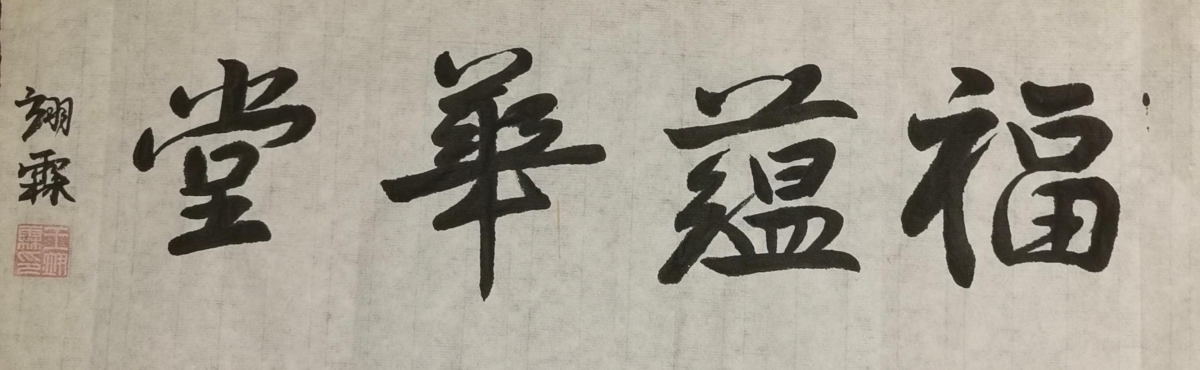 福蘊華堂
翊霖